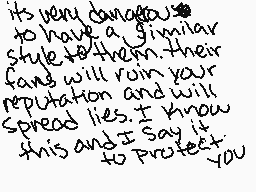 its very dangerous
to have a similar
style to them. their
fans will ruin your
reputation and will
spread lies. I know
this and I say it
to protect you